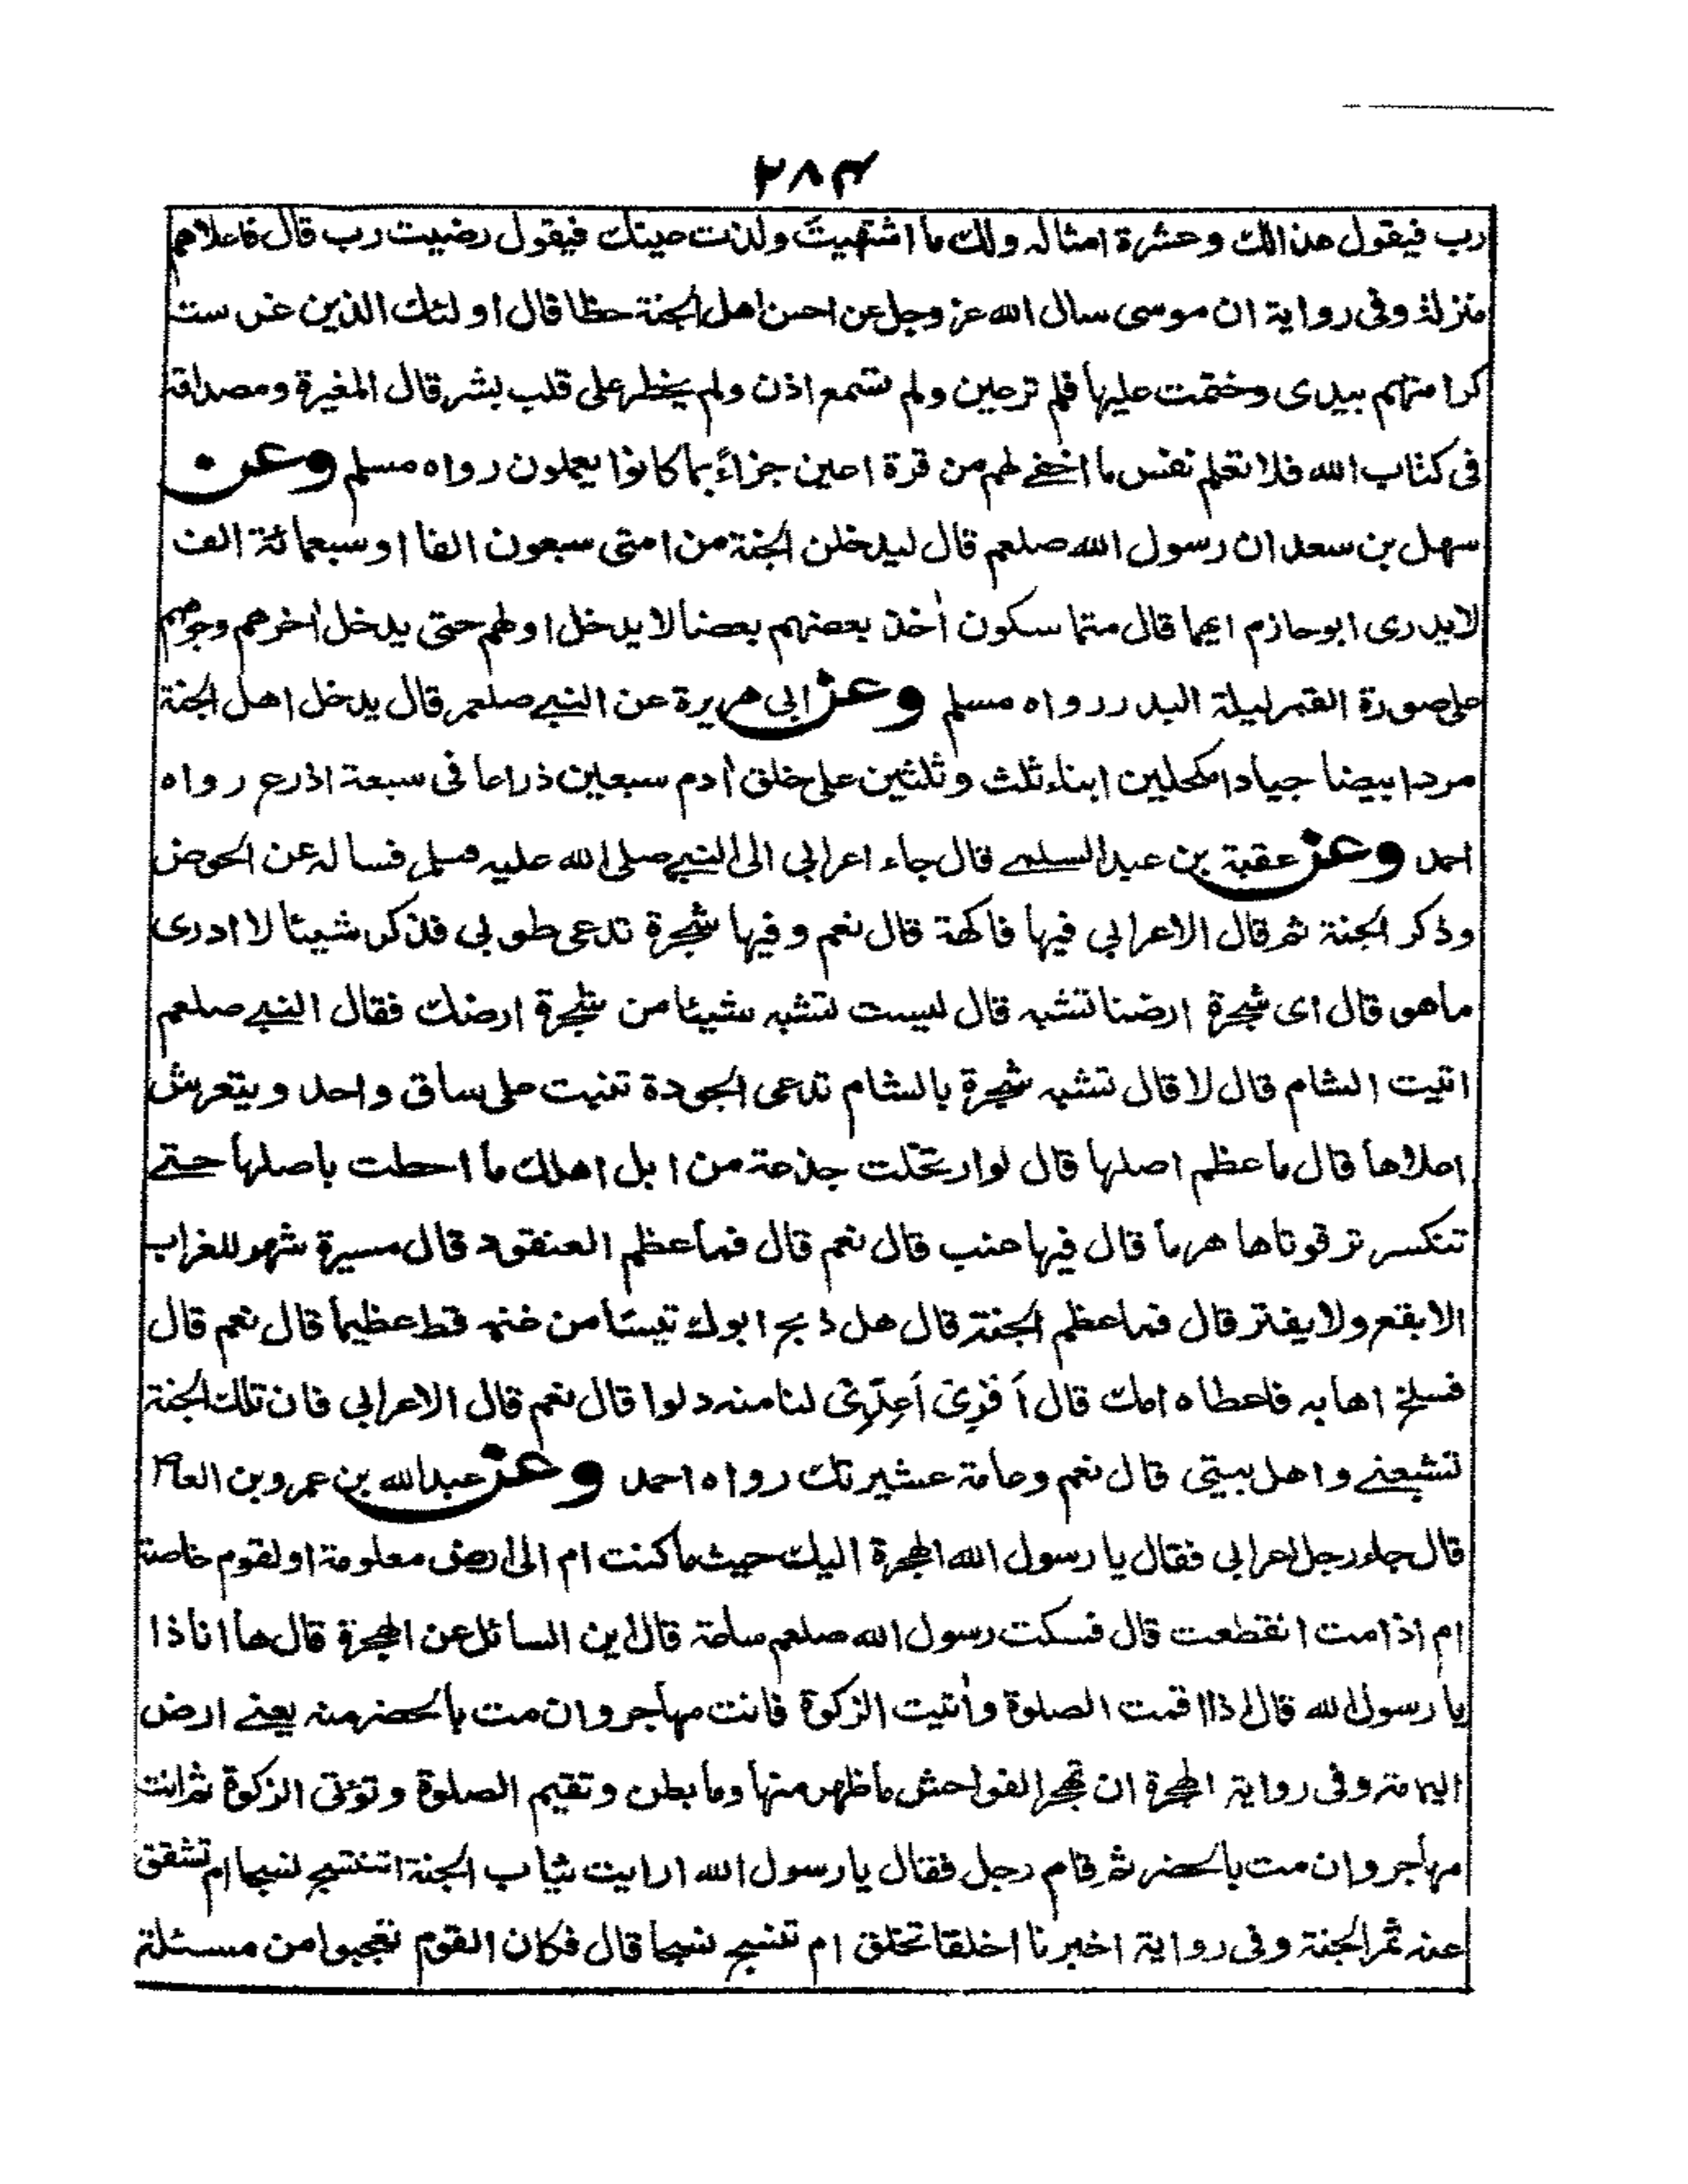 ٢٨٣
رب فيقول هذا لك وعشرة امثاله ولك ما اشتهيت ولذت عينك فيقول رضيت رب قال فاعلاهم
منزلة وفى رواية ان موسى سال الله عز وجل عن احسن اهل الجنة حظا قال اولئك الذين غرست
كرامتهم بيدى وختمت عليها فلم ترعين ولم تسمع اذن ولم يخطر على قلب بشر قال المغيرة ومصداقه
فى كتاب الله فلا تعلم نفس ما اخفى لهم من قرة اعين جزاءً بما كانوا يعملون رواه مسلم وعن
سهل بن سعد ان رسول الله صلعم قال ليدخلن الجنة من امتى سبعون الفا او سبعمائة الف
لا يدرى ابو حازم ايهما قال متماسكون أخذ بعضهم بعضا لا يدخل اولهم حتى يدخل أخرهم وجوههم
على صورة القمر ليلة البدر رواه مسلم وعن ابى هريرة عن النبے صلعم قال يدخل اهل الجنة
مردا بيضا جيادا مكحلين ابناء ثلث وثلثين على خلق أدم سبعين ذراعا فى سبعة اذرع رواه
احمد وعن عقبة بن عبد السلمے قال جاء اعرابى الى النبے صلى الله عليه وسلم فساله عن الحوض
وذكر الجنة ثم قال الاعرابى فيها فاكهة قال نعم وفيها شجرة تدعى طوبى فذكر شيئا لا ادرى
ما هو قال اى شجرة ارضنا تشبه قال ليست تشبه شيئا من شجرة ارضك فقال النبے صلعم
اتيت الشام قال لا قال تشبه شجرة بالشام تدعى الجودة تنبت على ساق واحد ويتعرش
اعلاها قال ما عظم اصلها قال لو ارتحلت جذعة من ابل اهلك ما احطت باصلها حتے
تنكسر ترقوتاها هرما قال فيها عنب قال نعم قال فما عظم العنقود قال مسيرة شهر للغراب
الابقع ولا يفتر قال فما عظم الجنة قال هل ذبح ابوك تيسا من غنمه قط عظيما قال نعم قال
فسلخ اهابه فاعطاه امك قال أ فَرِىْ أَعِدِّىْ لنا منه دلوا قال نعم قال الاعرابى فان تلك الجنة
تشبعنے واهل بيتى قال نعم وعامة عشيرتك رواه احمد وعن عبد الله بن عمرو بن العاص
قال جاء رجل اعرابى فقال يا رسول الله الهجرة اليك حيث ما كنت ام الى ارض معلومة او لقوم خاصة
ام اذا مت انقطعت قال فسكت رسول الله صلعم ساعة قال اين السائل عن الهجرة قال ها انا ذا
يا رسول الله قال اذا اقمت الصلوة وأتيت الزكوة فانت مهاجر وان مت بالحضرمنه يعنے ارض
اليمامة وفى رواية الهجرة ان تهجر الفواحش ما ظهر منها وما بطن وتقيم الصلوة وتؤتى الزكوة ثم انت
مهاجر وان مت بالحضر ثم قام رجل فقال يا رسول الله ارايت ثياب الجنة اتنتسج نسجا ام تشقق
عنه ثمر الجنة وفى رواية اخبرنا اخلقا تخلق ام تنسج نسجا قال فكان القوم تعجبوا من مسئلة